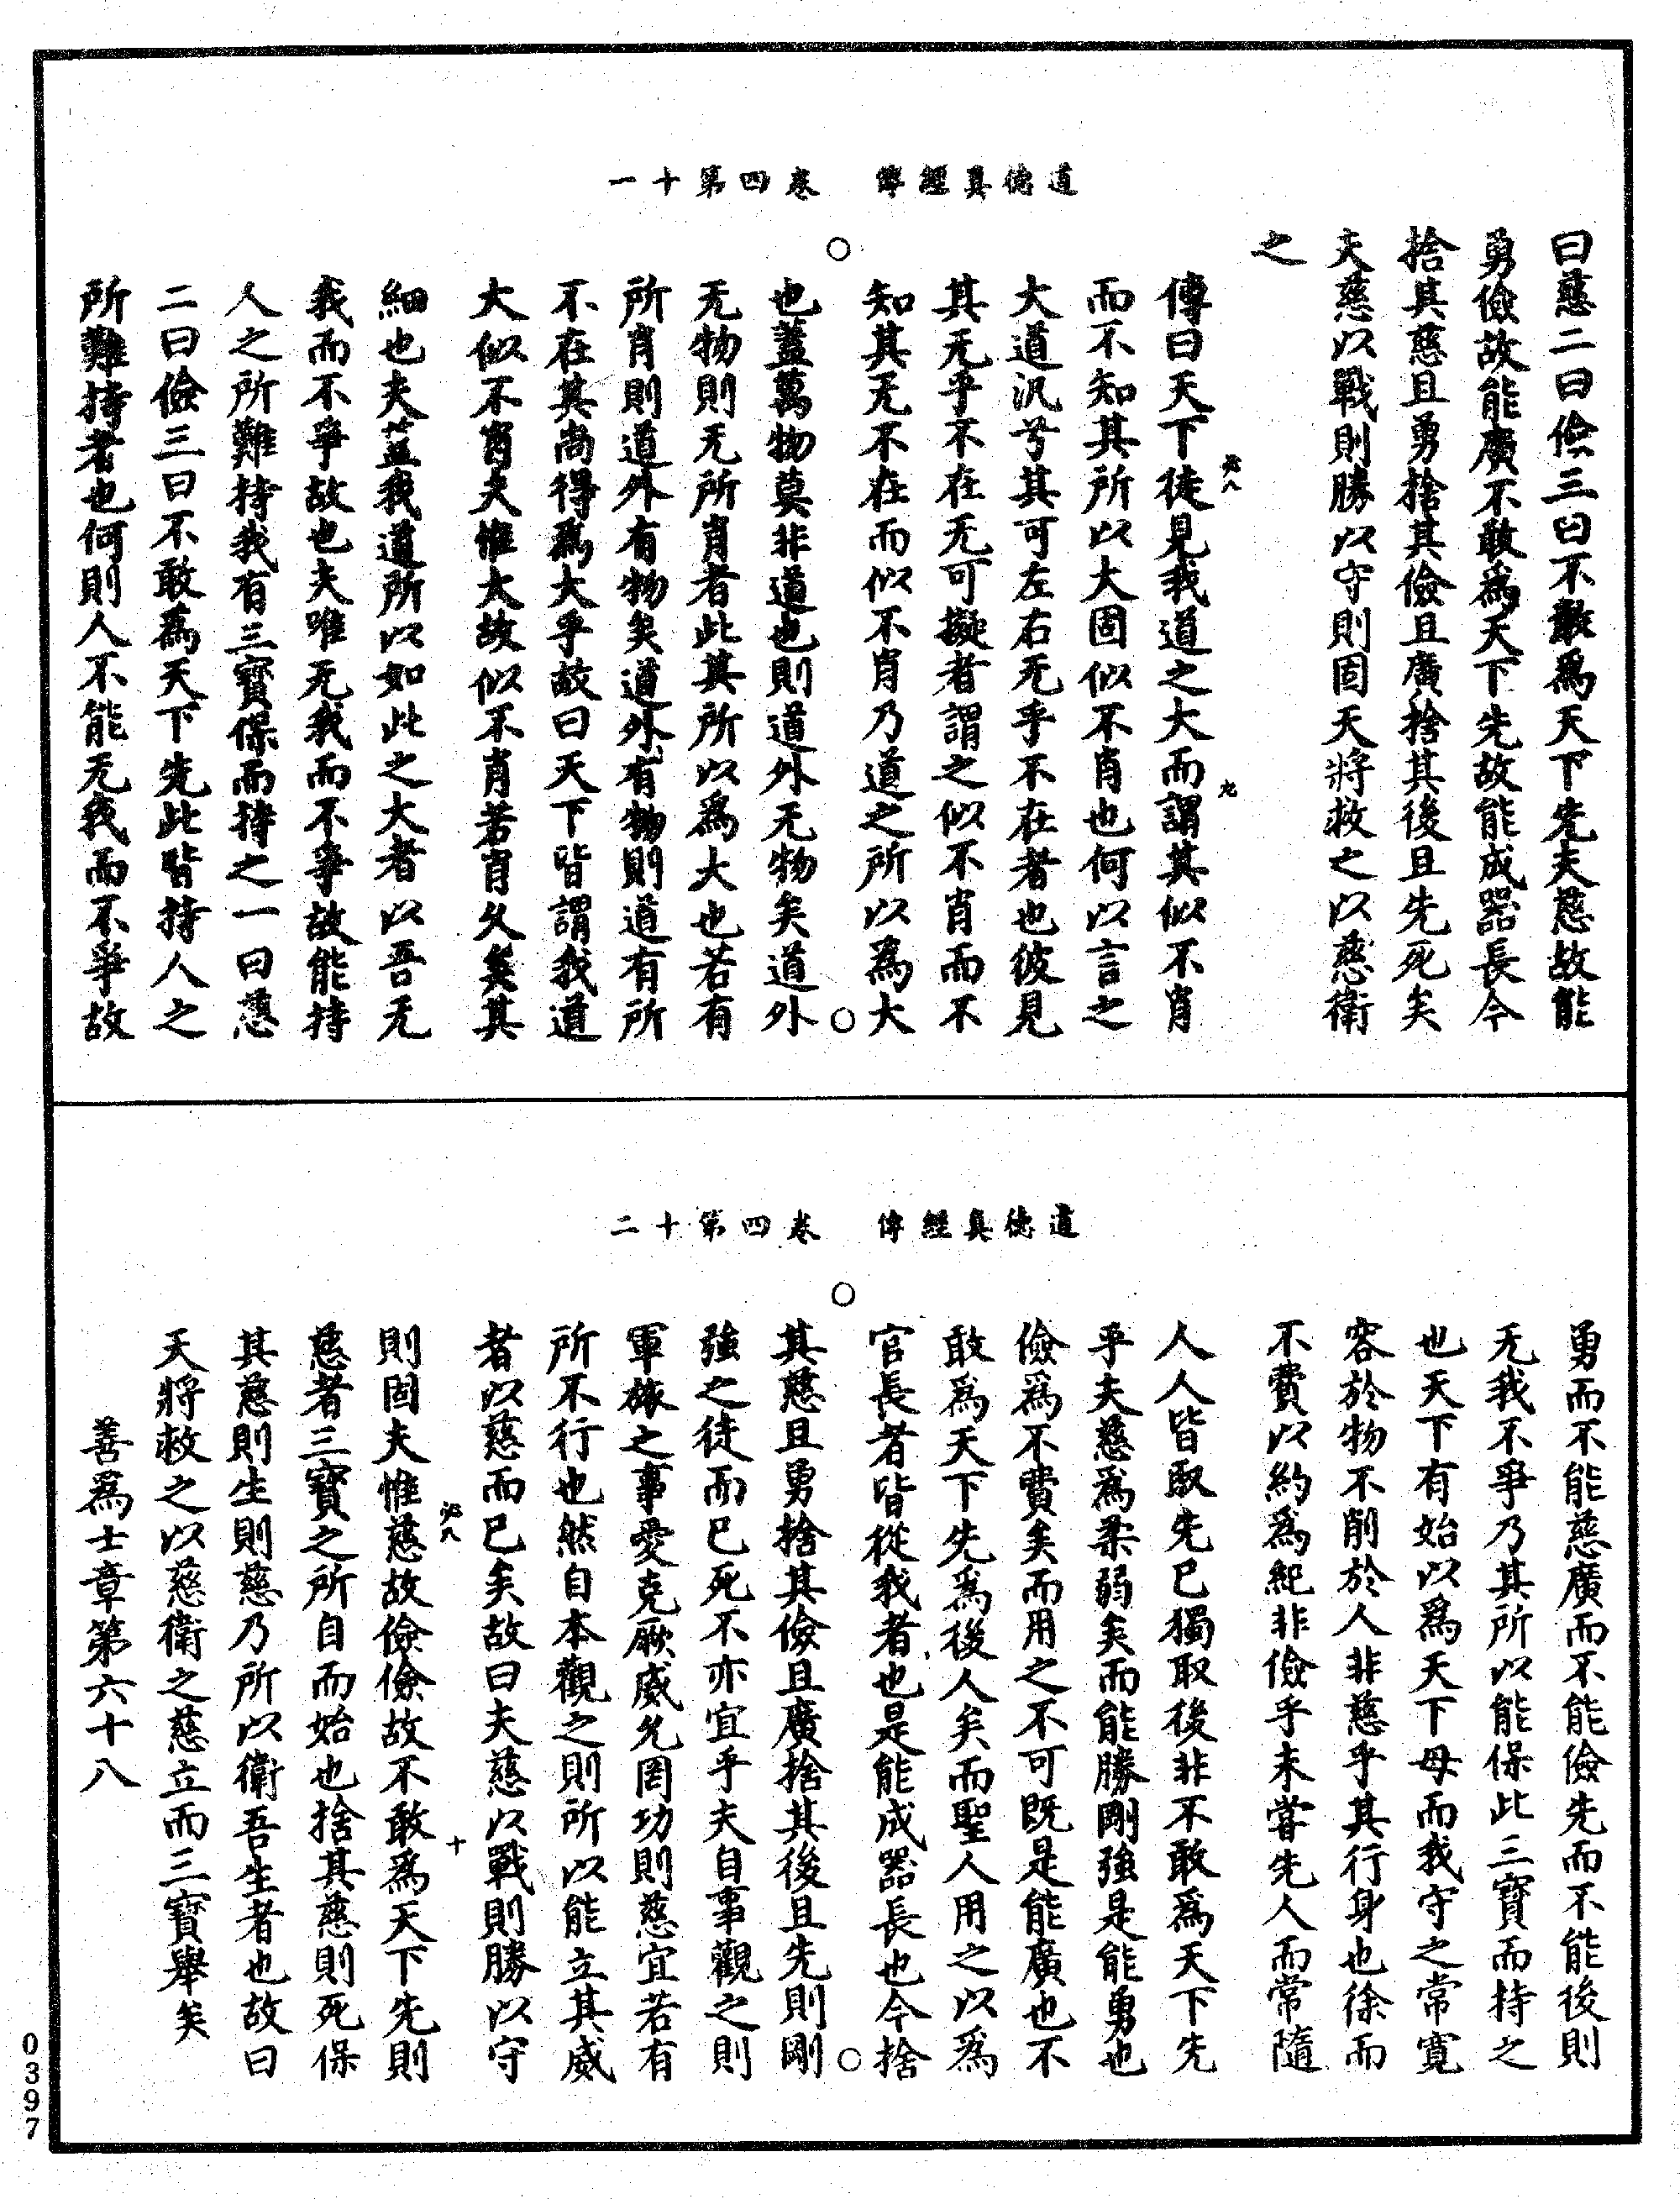 道德真經傳　卷四第十一
曰慈二曰儉三曰不敢爲天下先夫慈故能
勇儉故能廣不敢爲天下先故能成器長今
捨其慈且勇捨其儉且廣捨其後且先死矣
夫慈以戰則勝以守則固天將救之以慈衛
之
傳曰天下徒見我道之大而謂其似不肖
而不知其所以大固似不肖也何以言之
大道汎兮其可左右无乎不在者也彼見
其无乎不在无可擬者謂之似不肖而不
知其无不在而似不肖乃道之所以為大
也蓋萬物莫非道也則道外无物矣道外
无物則无所肖者此其所以爲大也若有
所肖則道外有物矣道外有物則道有所
不在其尚得爲大乎故曰天下皆謂我道
大似不肖夫惟大故似不肖若肖久矣其
細也夫蓋我道所以如此之大者以吾无
我而不爭故也夫唯无我而不爭故能持
人之所難持我有三寶保而持之一曰慈
二曰儉三曰不敢爲天下先此皆持人之
所難持者也何則人不能无我而不爭故
道德真經傳　卷四第十二
勇而不能慈廣而不能儉先而不能後則
无我不爭乃其所以能保此三寶而持之
也天下有始以爲天下母而我守之常寬
容於物不削於人非慈乎其行身也徐而
不費以約爲紀非儉乎未嘗先人而常隨
人人皆取先已獨取後非不敢爲天下先
乎夫慈爲柔弱矣而能勝剛強是能勇也
儉爲不費矣而用之不可既是能廣也不
敢爲天下先爲後人矣而聖人用之以爲
官長者皆從我者也是能成器長也今捨
其慈且勇捨其儉且廣捨其後且先則剛
強之徒而已死不亦宜乎夫自事觀之則
軍旅之事愛克厥威允罔功則慈宜若有
所不行也然自本觀之則所以能立其威
者以慈而已矣故曰夫慈以戰則勝以守
則固夫惟慈故儉儉故不敢爲天下先則
慈者三寶之所自而始也捨其慈則死保
其慈則生則慈乃所以衛吾生者也故曰
天將救之以慈衛之慈立而三寶舉矣
善爲士章第六十八
必八
九
必八
十
0397